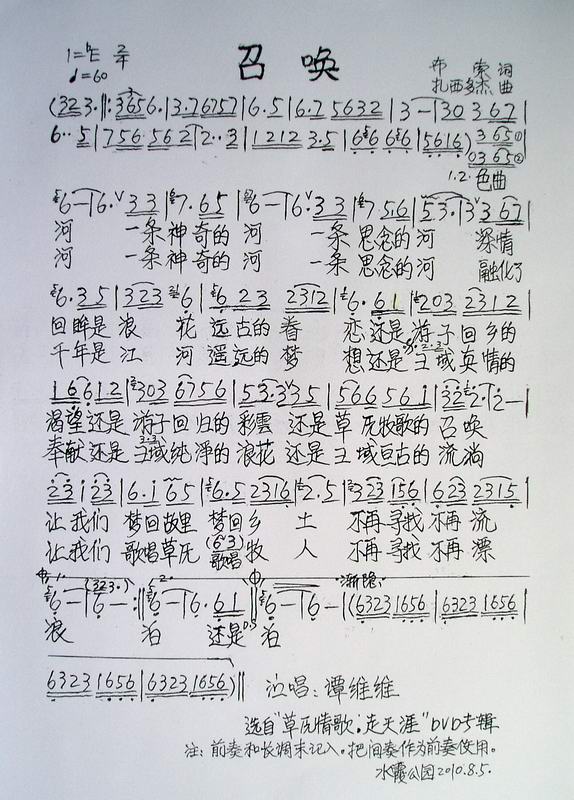 召唤
1=♭E 2/4
♩=60
布索 词
扎西多杰 曲
(323·‖:3656·|3·76757|6·5|6·7 5632|3-|30 367|
6··5|756·562|2··3|1212 3·5|6666|5616)365①
0365②
1.2.色曲
6-|6·33|7·65|6-|6·33|7 516|53·|3 367|
河 一条神奇的 河 一条思念的河 深情
河 一条神奇的 河 一条思念的河 融化了
6·35|323 6|6 23 2312|6·61|203 2312|
回眸是 浪 花 远古的 眷 恋还是 游子回乡的
千年是 江 河 遥远的 梦 想还是 王域真情的
16612|303 6756|53·335|566561|322·|2-|
渴望还是 游子回归的 彩雲 还是草原牧歌的 召唤
奉献还是 王域纯净的 浪花 还是王域亘古的 流淌
23123|6·165|6·5 2316|2·5|323 156|623 2315|
让我们 梦回故里 梦回乡 土 不再寻找 不再 流
让我们 歌唱草原 歌唱牧 人 不再寻找 不再 漂
(63)
6-|6-:‖6-|6·61‖6-|6-|(6323 1656|6323 1656|
(323·)
渐慢
浪 泊 还是 泊
6323 1656|6323 1656)‖ 演唱：谭维维
选自“草原情歌·走天涯”DVD专辑
注：前奏和长调未记入。把间奏作为前奏使用。
水霞公园2010.8.5.